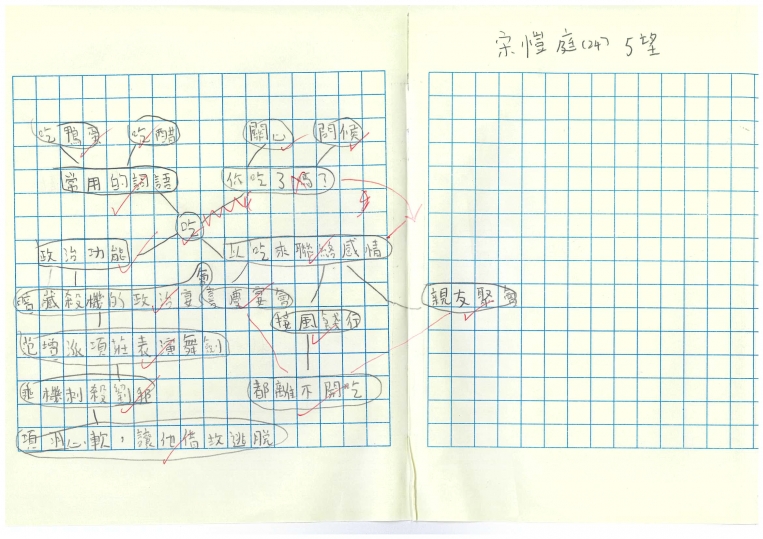 宋愷庭(24) 5望
吃鴨蛋 吃醋 關心 問候
常用的詞語 你吃了嗎?
吃
政治功能 以吃來聯絡感情
暗藏殺機的政治宴會 喜慶宴會 親友聚會
接風餞行
范增派項莊表演舞劍
趁機刺殺劉邦 都離不開吃
項羽心軟,讓他借故逃脫